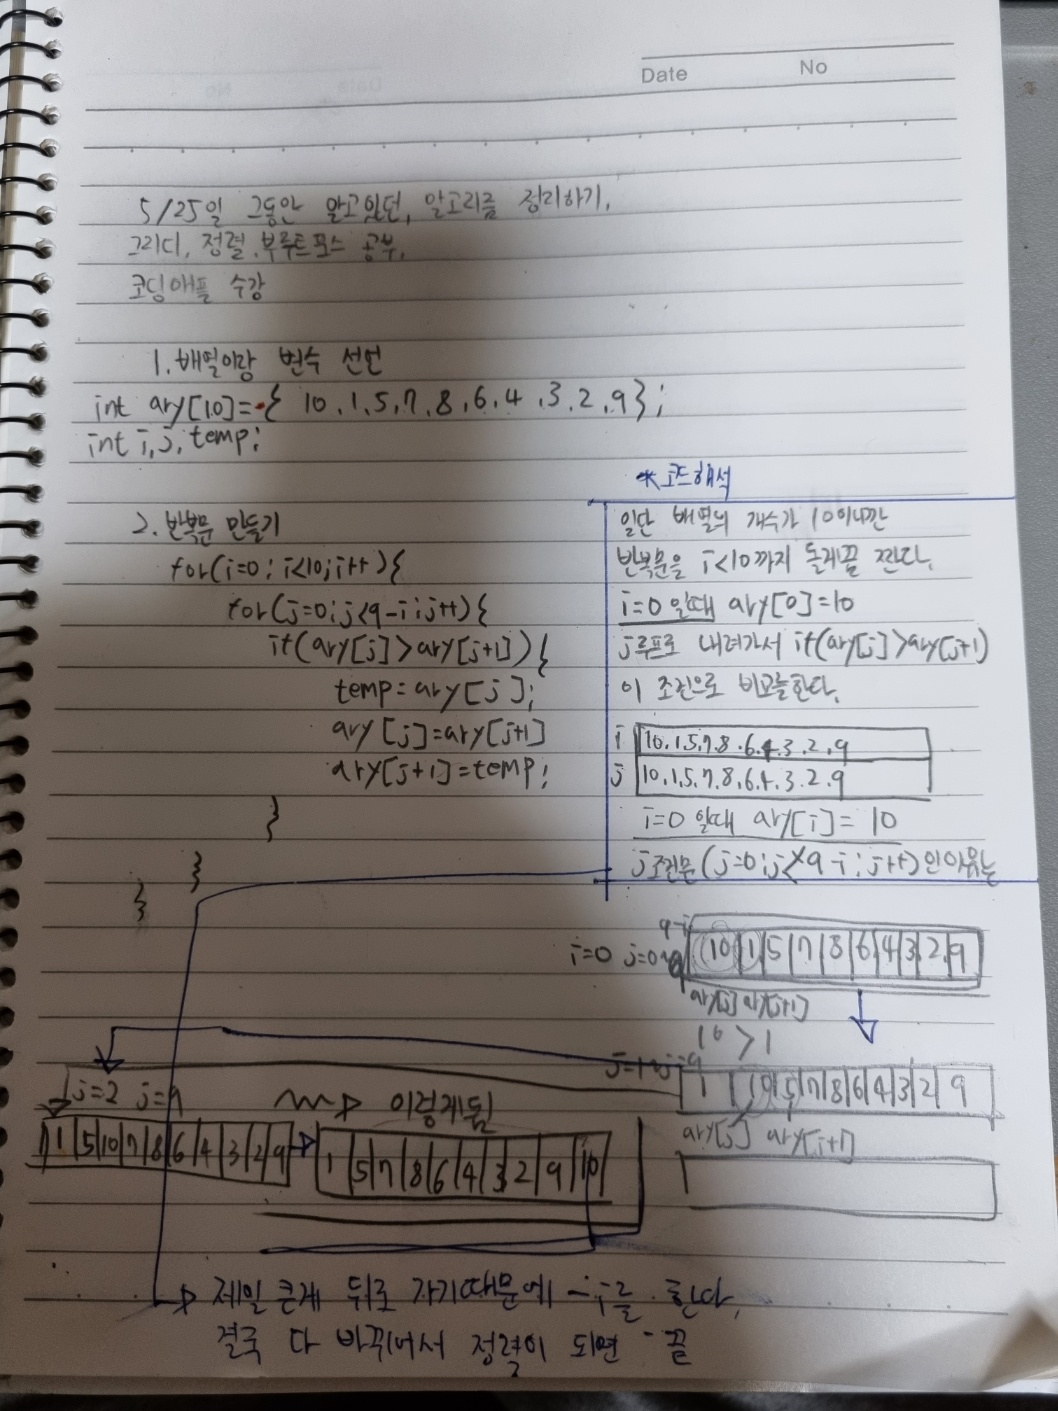 Date No
5/25일 그동안 알고있던, 알고리즘 정리하기,
그리디, 정렬, 부루트포스 공부,
코딩애플 수강
1. 배열이랑 변수 선언
int ary[10]= { 10,1,5,7,8,6,4,3,2,9};
int i,j,temp;
2. 반복문 만들기
for(i=0; i<10;i++){
for(j=0;j<9-i;j++){
if(ary[j]>ary[j+1]){
temp=ary[j];
ary[j]=ary[j+1]
ary[j+1]=temp;
}
}
}
*코드해석
일단 배열의 개수가 10이니깐
반복문을 i<10까지 돌게끔 짠다.
i=0 일때 ary[0]=10
j루프로 내려가서 if(ary[j]>ary[j+1)
이 조건으로 비교를한다.
i 10,1,5,7,8,6,4,3,2,9
j 10,1,5,7,8,6,4,3,2,9
i=0 일때 ary[i]= 10
j조건문(j=0;j<9-i;j++)인 이유는
9-i
i=0 j=0 10 1 5 7 8 6 4 3 2 9
ary[j] ary[j+1]
10 > 1
1 10 5 7 8 6 4 3 2 9
ary[j] ary[j+1]
j=2 j=9 이렇게됨
1 5 10 7 8 6 4 3 2 9 1 5 7 8 6 4 3 2 9 10
제일 큰게 뒤로 가기때문에 -i를 한다,
결국 다 바뀌어서 정렬이 되면 끝